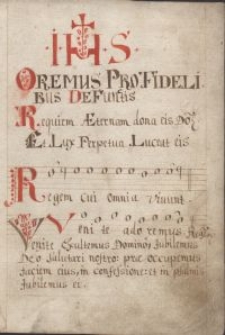 I·H·S·
OREMUS PRO FIDELI
BUS DEFUNCTIS
Requiem Æternam dona eis Do
Et Lux Perpetua Luceat eis
Regem Cui omnia vivunt
Veni te ado remus
Venite Exultemus Domino: Jubilemus
Deo Salutari nostro: præ occupemus
faciem eius, in confessione: et in psalmis
Jubilemus ei.